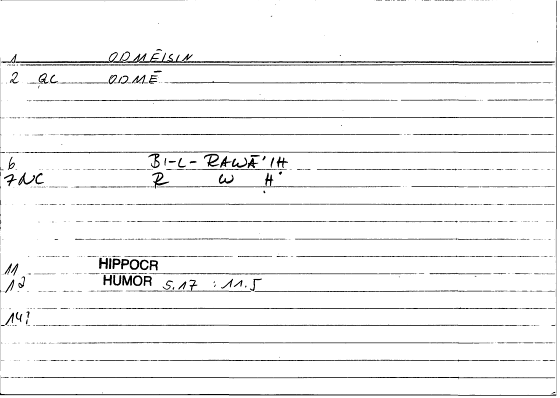 1 ODMĒISIN
2 QC ODMĒ
6 BI-L-RAWĀ'IH
7 NC R W H
11 HIPPOCR
12 HUMOR 5.17 : 11.5
14!